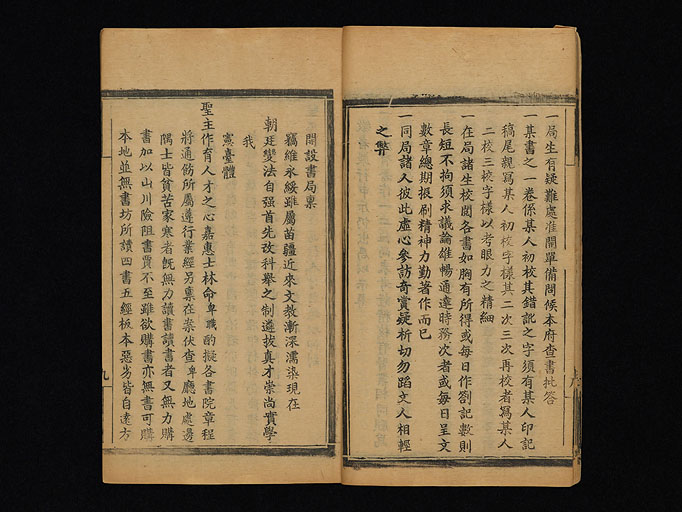 一局生有疑難處准開單備問候本府查書批答
一某書之一卷係某人初校其錯訛之字須有某人印記
稿尾親寫某人初校字樣其二次三次再校者寫某人
二校三校字樣以考眼力之精細
一在局諸生校閱各書如胸有所得或每日作劄記數則
長短不拘須求議論雄暢通達時務次者或每日呈文
數章總期振刷精神力勤著作而已
一同局諸人彼此虛心參訪奇賞疑析切勿蹈文人相輕
之弊
開設書局稟
竊維永綏雖屬苗疆近來文教漸深濡染現在
朝廷變法自强首先改科舉之制遴拔真才崇尚實學
我
憲臺體
聖主作育人才之心嘉惠士林命卑職酌擬各書院章程
將通飭所屬遵行業經另稟在案伏查卑廳地處邊
隅士皆貧苦家寒者旣無力讀書讀書者又無力購
書加以山川險阻書賈不至雖欲購書亦無書可購
本地並無書坊所讀四書五經板本惡劣皆自遠方
九